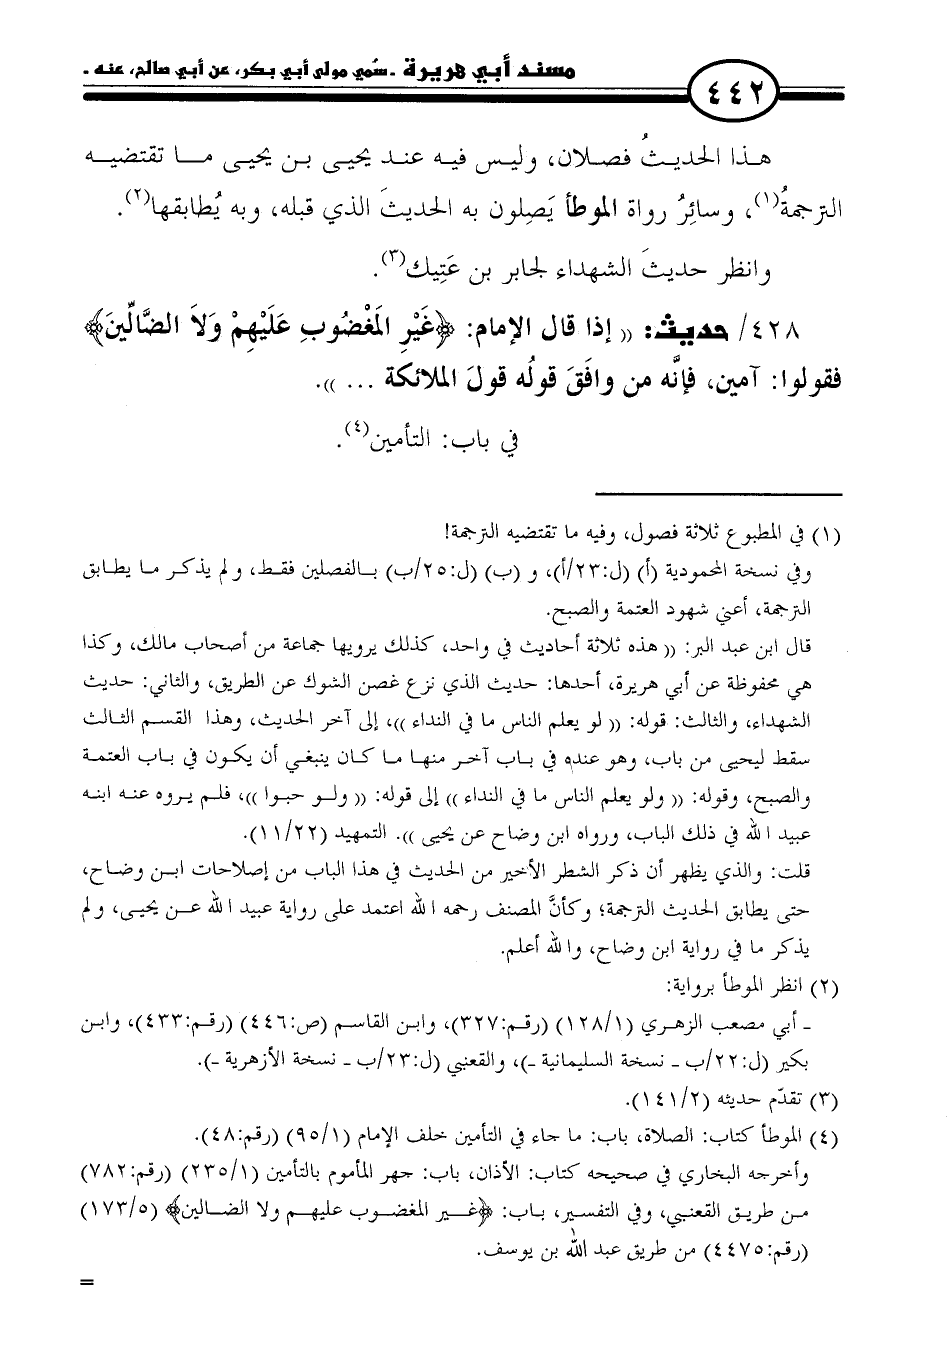 مسند أبي هريرة - سُمي مولى أبي بكر، عن أبي صالح، عنه -
٤٤٢
هذا الحديثُ فصلان، وليس فيه عند يحيى بن يحيى ما تقتضيه
الترجمةُ(١)، وسائِرُ رواة الموطأ يَصِلون به الحديثَ الذي قبله، وبه يُطابقها(٢).
وانظر حديثَ الشهداء لجابر بن عَتِيك(٣).
٤٢٨/ حديث: (( إذا قال الإمام: ﴿غَيْرِ المَغْضُوبِ عَلَيْهِمْ وَلاَ الضَّالِّينَ﴾
فقولوا: آمين، فإنَّه من وافَقَ قولُه قولَ الملائكة ... )).
في باب: التأمين(٤).
(١) في المطبوع ثلاثة فصول، وفيه ما تقتضيه الترجمة!
وفي نسخة المحمودية (أ) (ل:٢٣/أ)، و (ب) (ل:٢٥/ب) بالفصلين فقط، ولم يذكر ما يطابق
الترجمة، أعني شهود العتمة والصبح.
قال ابن عبد البر: (( هذه ثلاثة أحاديث في واحد، كذلك يرويها جماعة من أصحاب مالك، وكذا
هي محفوظة عن أبي هريرة، أحدها: حديث الذي نزع غصن الشوك عن الطريق، والثاني: حديث
الشهداء، والثالث: قوله: (( لو يعلم الناس ما في النداء ))، إلى آخر الحديث، وهذا القسم الثالث
سقط ليحيى من باب، وهو عنده في باب آخر منها ما كان ينبغي أن يكون في باب العتمة
والصبح، وقوله: (( ولو يعلم الناس ما في النداء )) إلى قوله: (( ولو حبوا ))، فلم يروه عنه ابنه
عبيد الله في ذلك الباب، ورواه ابن وضاح عن يحيى )). التمهيد (١١/٢٢).
قلت: والذي يظهر أن ذكر الشطر الأخير من الحديث في هذا الباب من إصلاحات ابن وضاح،
حتى يطابق الحديث الترجمة؛ وكأنَّ المصنف رحمه الله اعتمد على رواية عبيد الله عن يحيى، ولم
يذكر ما في رواية ابن وضاح، والله أعلم.
(٢) انظر الموطأ برواية:
ـ أبي مصعب الزهري (١٢٨/١) (رقم:٣٢٧)، وابن القاسم (ص:٤٤٦) (رقم:٤٣٣)، وابن
بكير (ل:٢٢/ب ـ نسخة السليمانية ـ)، والقعنبي (ل:٢٣/ب ـ نسخة الأزهرية ـ).
(٣) تقدّم حديثه (١٤١/٢).
(٤) الموطأ كتاب: الصلاة، باب: ما جاء في التأمين خلف الإمام (٩٥/١) (رقم:٤٨).
وأخرجه البخاري في صحيحه كتاب: الأذان، باب: جهر المأموم بالتأمين (٢٣٥/١) (رقم:٧٨٢)
من طريق القعنبي، وفي التفسير، باب: ﴿غير المغضوب عليهم ولا الضالين﴾ (١٧٣/٥)
(رقم:٤٤٧٥) من طريق عبد الله بن يوسف.
=